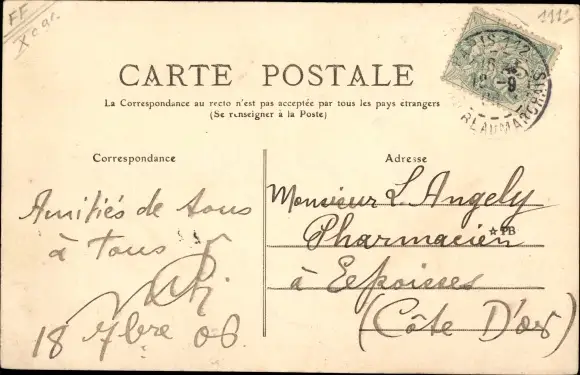 FF
1112
PARIS 112
18 -9
Bd BEAUMARCHAIS
CARTE POSTALE
La Correspondance au recto n'est pas acceptée par tous les pays étrangers
(Se renseigner à la Poste)
Correspondance
Amitiés de tous
à tous
18 7bre 06
Adresse
Monsieur L. Angely
Pharmacien
★PB
à Epoisses
(Côte D'or)